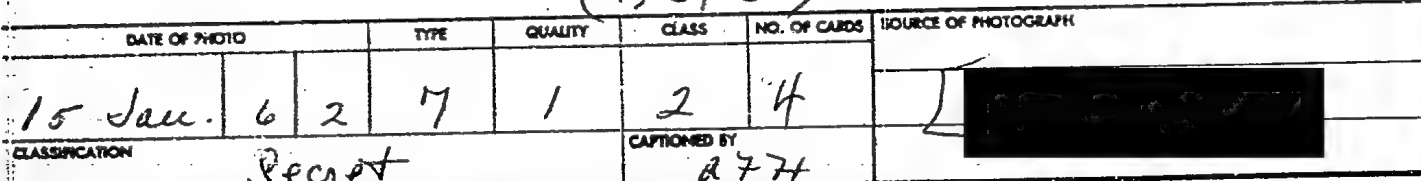 DATE OF PHOTO TYPE QUALITY CLASS NO. OF CARDS SOURCE OF PHOTOGRAPH
15 Jan. 6 2 7 1 2 4
CLASSIFICATION CAPTIONED BY
Secret